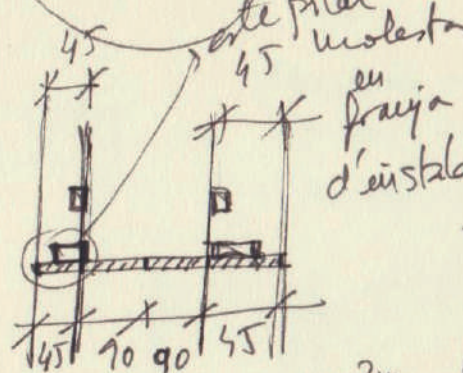 este pilar
45 45 molesta
en
franja
d'instal
45 90 90 45